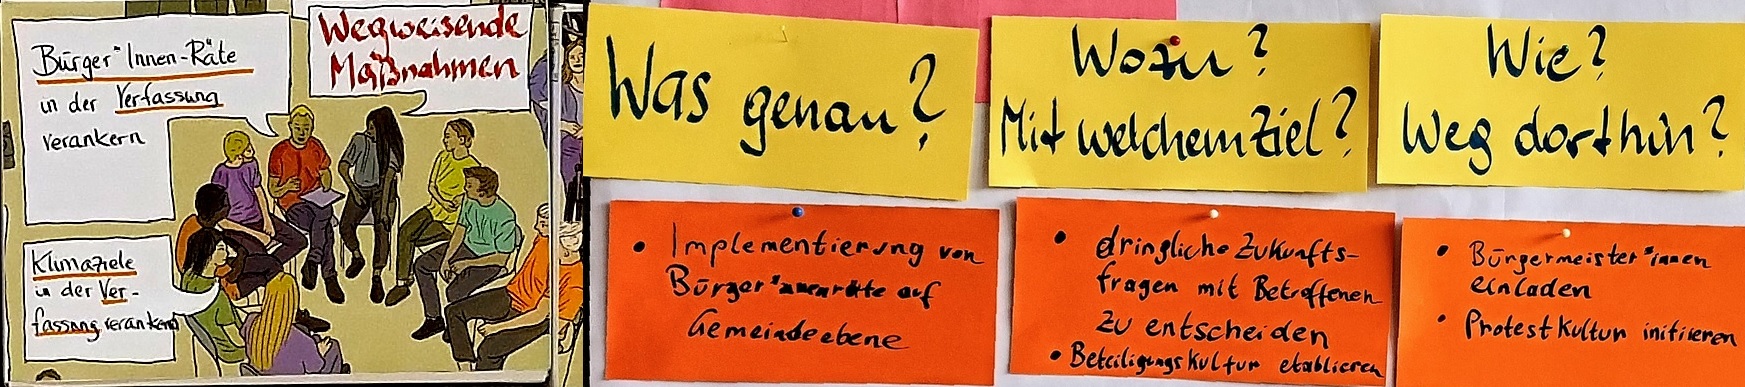 Bürger*Innen-Räte
in der Verfassung
verankern
Wegweisende
Maßnahmen
Klimaziele
in der Ver-
fassung verankern
Was genau?
Wozu?
Mit welchem Ziel?
Wie?
Weg dorthin?
• Implementierung von
Bürger*innenräte auf
Gemeindeebene
• dringliche Zukunfts-
fragen mit Betroffenen
zu entscheiden
• Beteiligungskultur etablieren
• Bürgermeister*innen
einladen
• Protestkultur initiieren